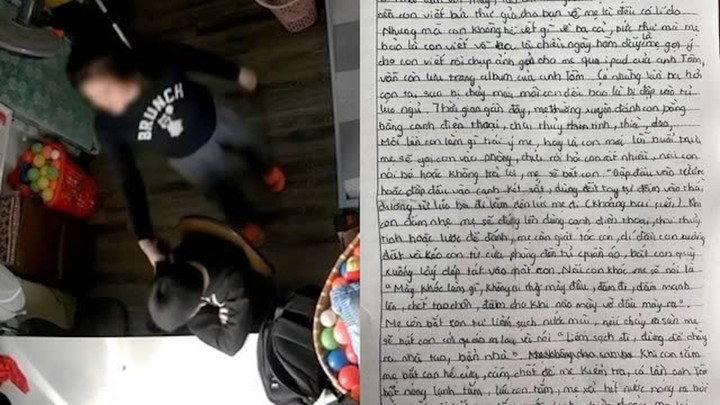 BRUNCH
nên con viết bức thư giả cho bạn vì mẹ kì đều có lí do
Nhưng mà con không hề viết gì về ba cả, bức thư mà mẹ
bảo là con viết về ba là chiều ngày hôm
cho con viết rồi chụp ảnh gửi cho mẹ qua ipad của anh Tâm,
vẫn còn lưu trong album của anh Tâm. Có những lúc ba hỏi
con tại sao bị chảy máu mồi con đều bảo là bị đập vào tủ
lúc ngủ. Thời gian gần đây, mẹ thường xuyên đánh con bằng
bằng cạnh điện thoại, chai thủy tinh, thìa, dao,
Mỗi lần con làm gì trái ý mẹ, hay là con mới lại buổi trưa,
mẹ sẽ gọi con vào phòng, chửi rồi hỏi con rất nhiều, nếu con
nói bé hoặc không trả lời, mẹ sẽ bắt con "Đập đầu vào tường
hoặc đập đầu vào cạnh két sắt, dùng đốt tay tự đấm vào thái
dương từ lúc ba đi làm đến lúc mẹ đi (khoảng hai tiếng) Khi
con đấm nhẹ mẹ sẽ đứng lên dùng cạnh điện thoại, chai thủy
tinh hoặc lược để đánh, mẹ còn giật tóc con, dí đầu con xuống
đất và kéo con từ cửa phòng đến tủ quần áo, bắt con quỳ
xuống lấy dép tát vào mặt con. Nếu con khóc mẹ sẽ nói là
"Mày khóc làm gì, không ai thờ mày đâu, đấm đi, đấm mạnh
lên, chết tao chôn, đấm cho khi nào mày vỡ đầu mày ra".
Mẹ còn bắt con tự liếm sạch nước mũi, nếu chảy ra sàn mẹ
sẽ bắt con cởi quần áo ra lau và nói "Liếm sạch đi, đừng để chảy
ra nhà tao, bẩn nhà". Khi con tắm
mẹ bắt con hé cửa, cấm chốt để mẹ kiểm tra, có lần anh Tâm
bật nóng lạnh tắm, lúc con tắm, mẹ xả hết nước nóng ra bồn